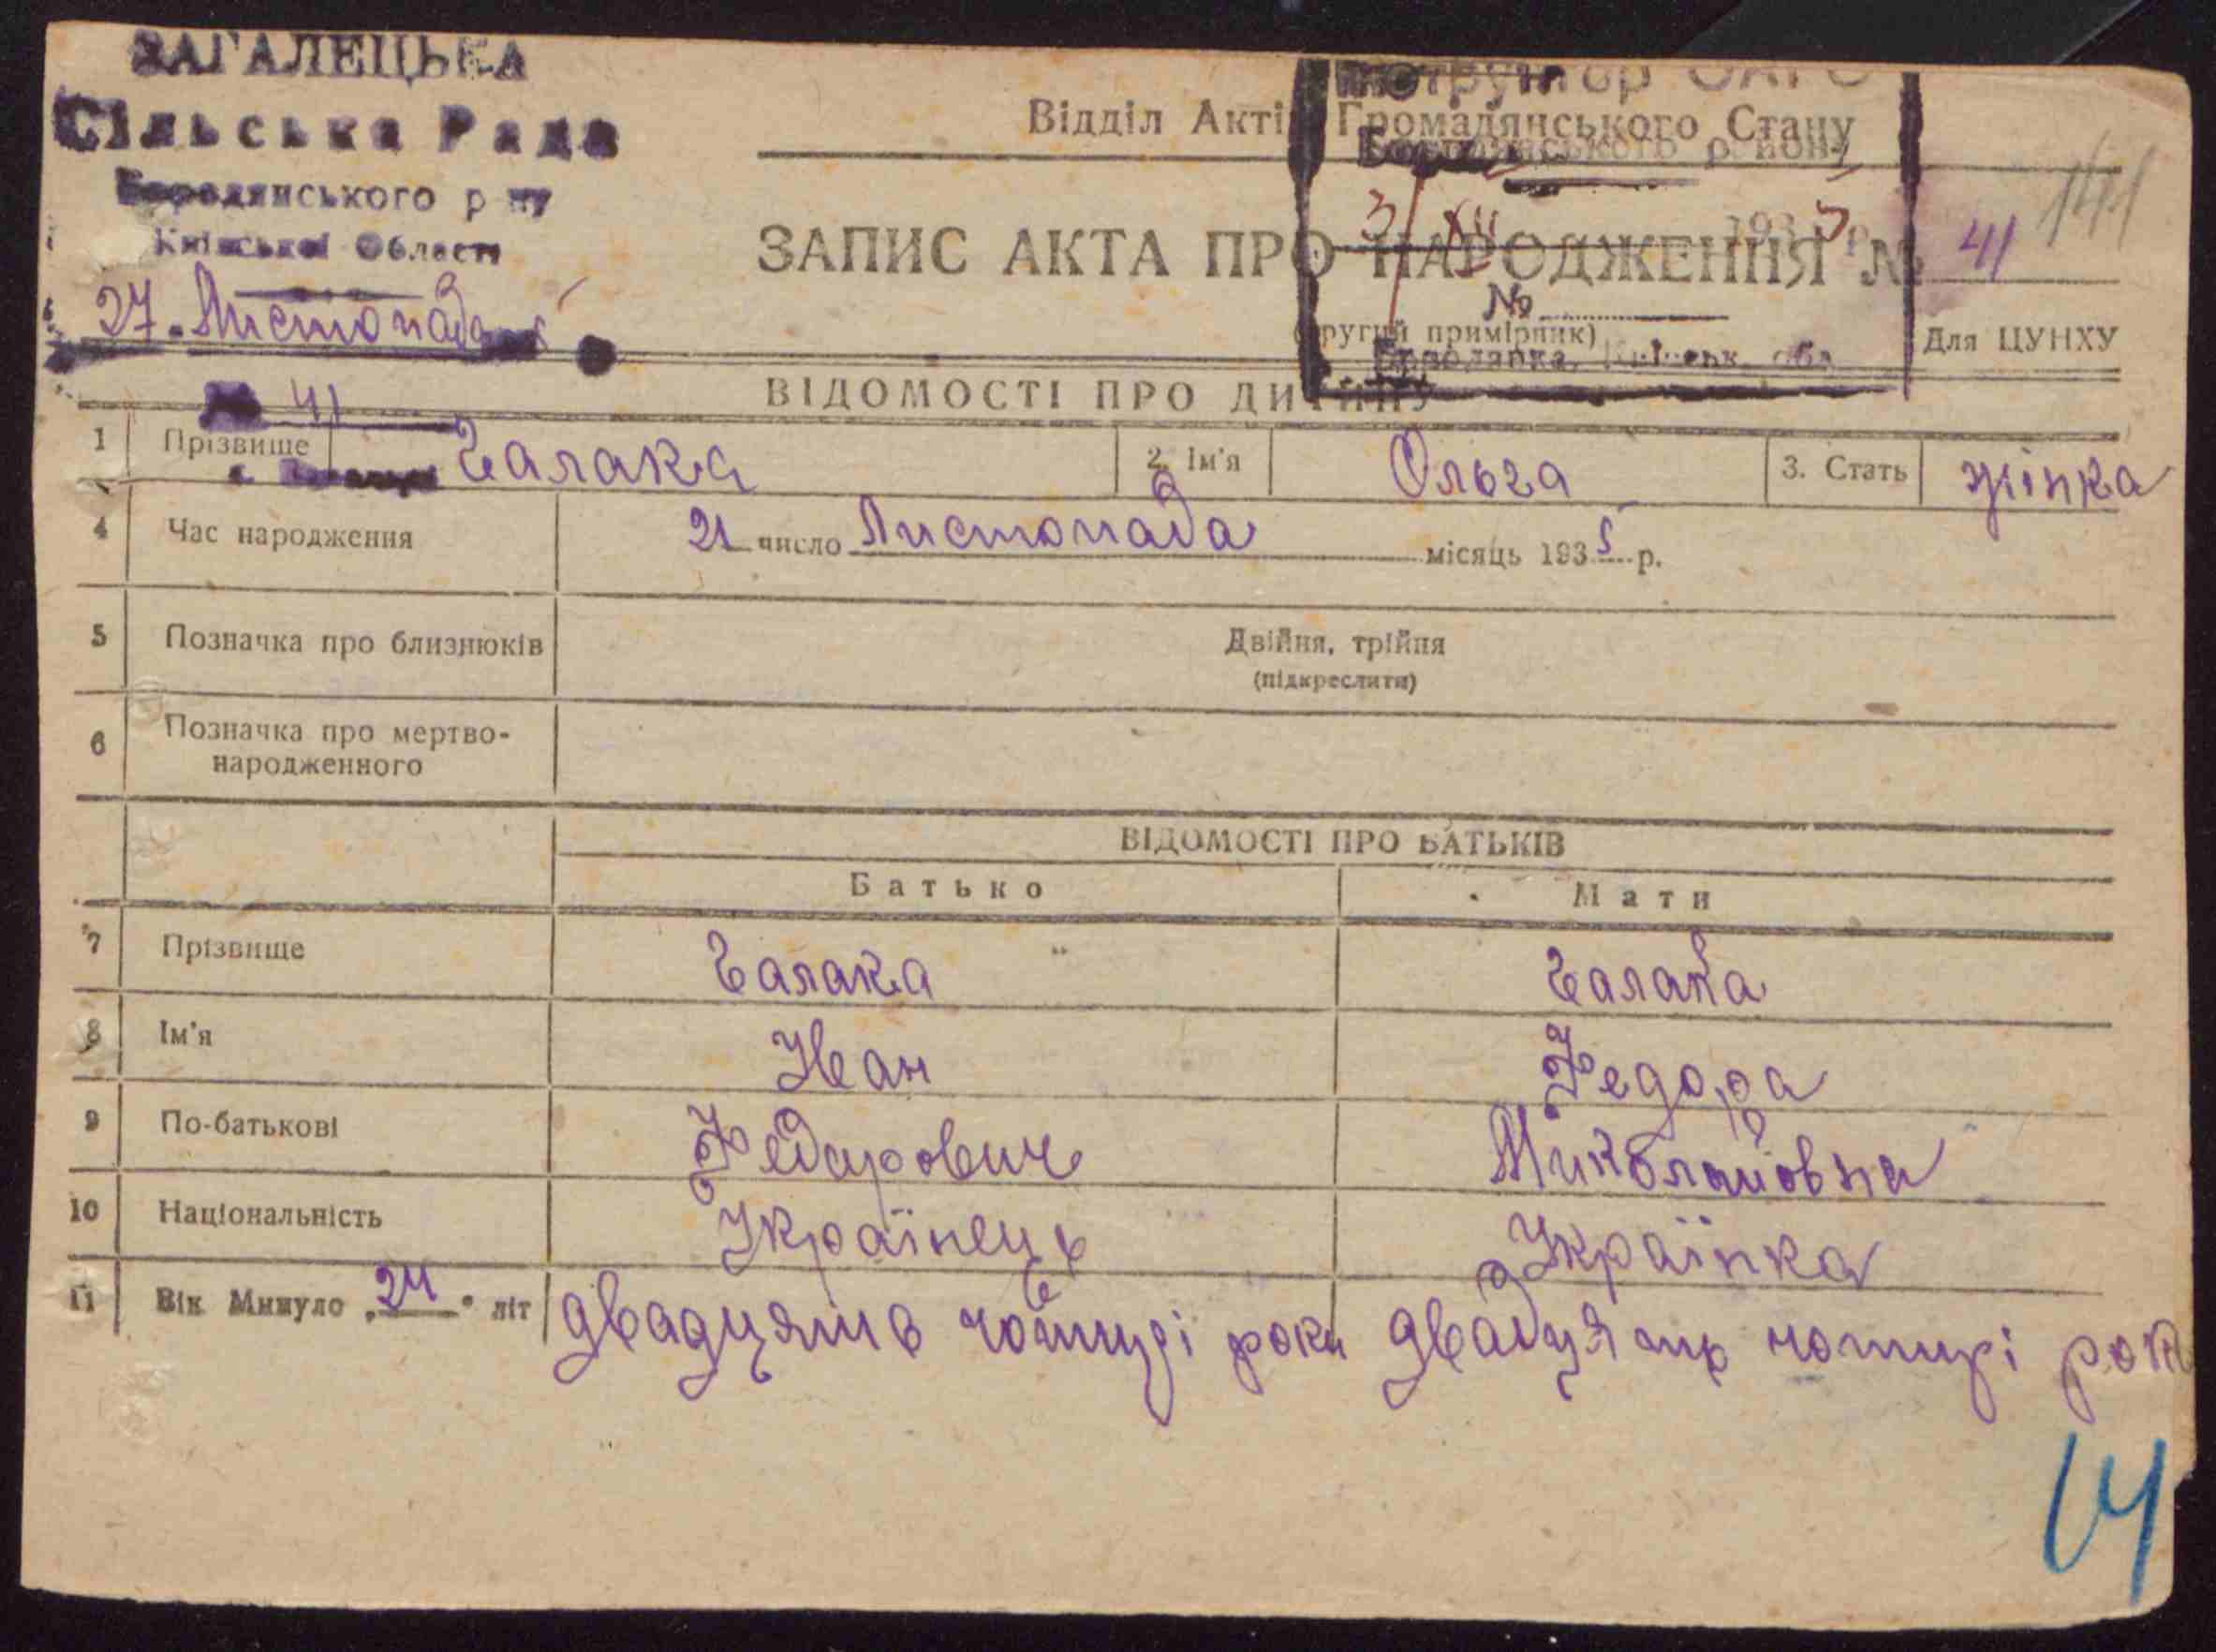 ЗАГАЛЕЦЬКА
Сільська Рада
Бородянського р ну
Київської Області
27. Листопада
№ 41
Відділ Актів Громадянського Стану
Інструктор ОАГС
Бородянського району
3/XII 1935 р.
№
Бородянка, Київськ. обл.
141
ЗАПИС АКТА ПРО НАРОДЖЕННЯ № 41
(другий примірник)
Для ЦУНХУ
ВІДОМОСТІ ПРО ДИТИНУ
1 Прізвище Галака 2. Ім'я Ольга 3. Стать жінка
4 Час народження 21 число Листопада місяць 1935 р.
5 Позначка про близнюків Двійня, трійня
(підкреслити)
6 Позначка про мертво-
народженного
ВІДОМОСТІ ПРО БАТЬКІВ
Батько Мати
7 Прізвище Галака Галака
8 Ім'я Іван Федора
9 По-батькові Федорович Миколайовна
10 Національність Українець Українка
11 Вік Минуло „24" літ двадцять чотирі роки двадцять чотирі роки
14